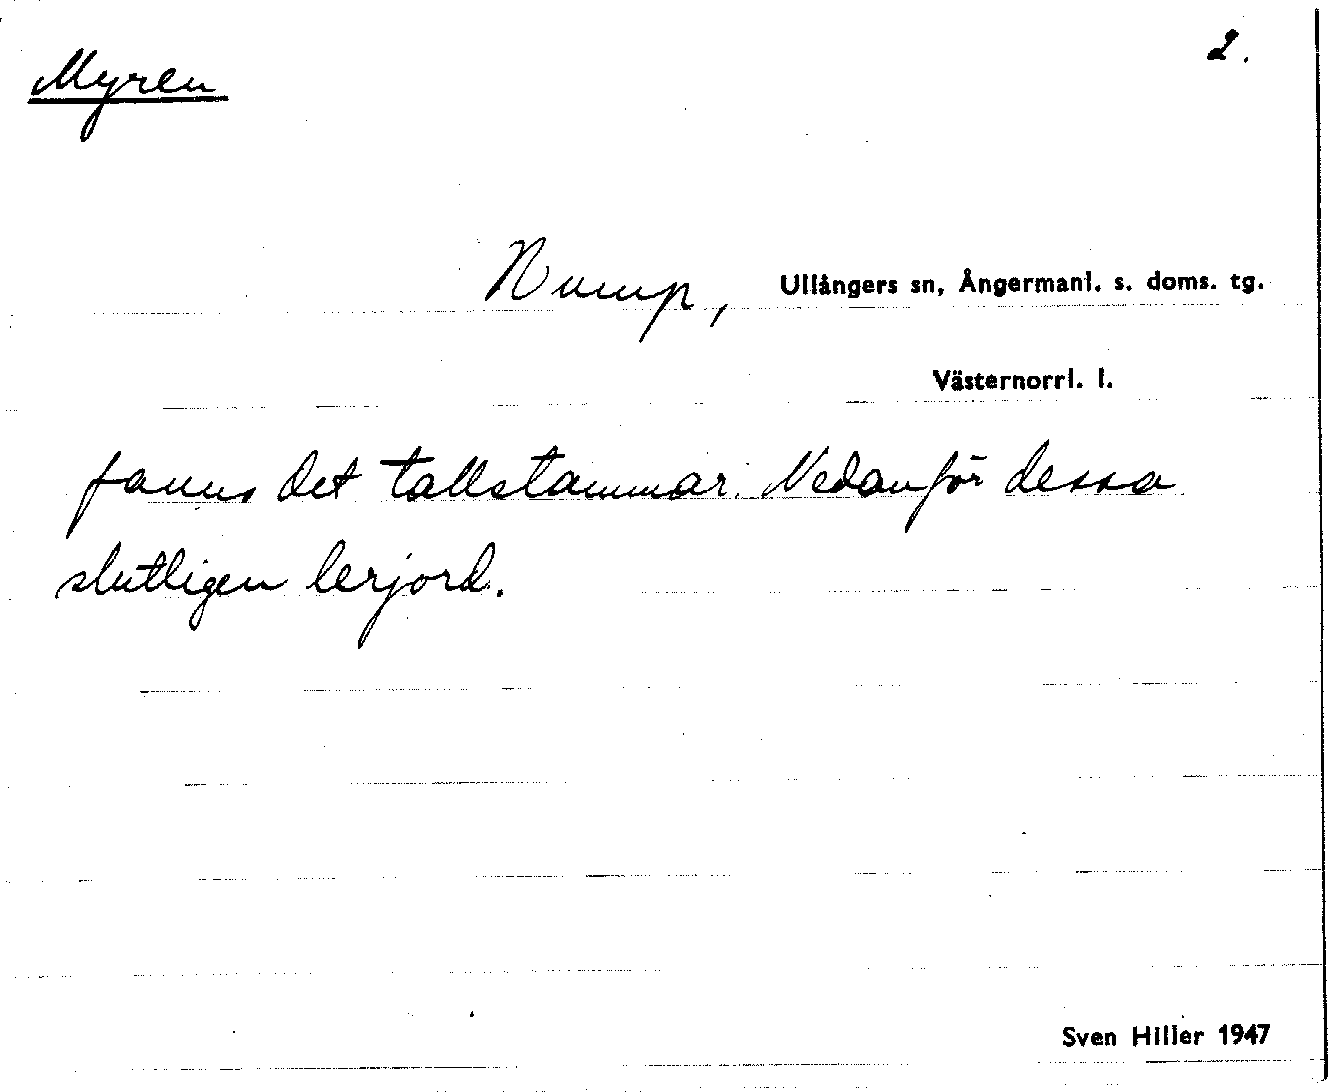 2.
Myren
Nump, Ullångers sn, Ångermanl. s. doms. tg.
Västernorrl. l.
fanns det tallstammar. Nedanför dessa
slutligen lerjord.
Sven Hiller 1947